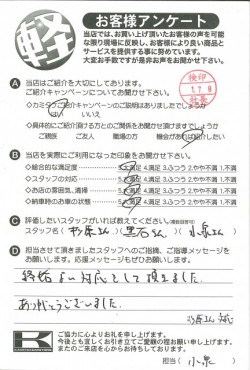 軽
お客様アンケート
当店では、お買い上げ頂いたお客様の声を可能
な限り現場に反映し、お客様により良い商品と
サービスを提供する事に努めています。
大変お手数ですが是非お声をお聞かせ下さい。
検印
1.7.9
A 当店はご紹介を大切にしております。
ご紹介キャンペーンについてお聞かせ下さい。
・カミタケご紹介キャンペーンのご説明はありましたでしょうか
はい いいえ
・具体的にご紹介頂ける方とのご関係をお聞かせ頂けますでしょうか
ご親族 ご友人 職場の方 機会があれば紹介したい
B 当店を実際にご利用になった印象をお聞かせ下さい。
・総合的な満足度 5.大満足 4.満足 3.ふつう 2.やや不満 1.不満
・スタッフの対応 5.大満足 4.満足 3.ふつう 2.やや不満 1.不満
・お店の雰囲気、清掃 5.大満足 4.満足 3.ふつう 2.やや不満 1.不満
・納車時のお車の状態 5.大満足 4.満足 3.ふつう 2.やや不満 1.不満
C 評価したいスタッフがいれば教えてください。(複数回答可)
スタッフ名( 杉原さん )( 黒石さん )( 小泉さん )
D 担当させて頂きましたスタッフへのご指摘、ご指導メッセージを
お願いします。応援メッセージもぜひお願いします。
終始よい対応をして頂きました。
ありがとうございました。
K
ご協力に心よりお礼を申し上げます。
今後とも宜しくお引き立てご愛顧の程お願い申し上げます。
またのご来店を心からお待ちしております。
担当( 小泉 )